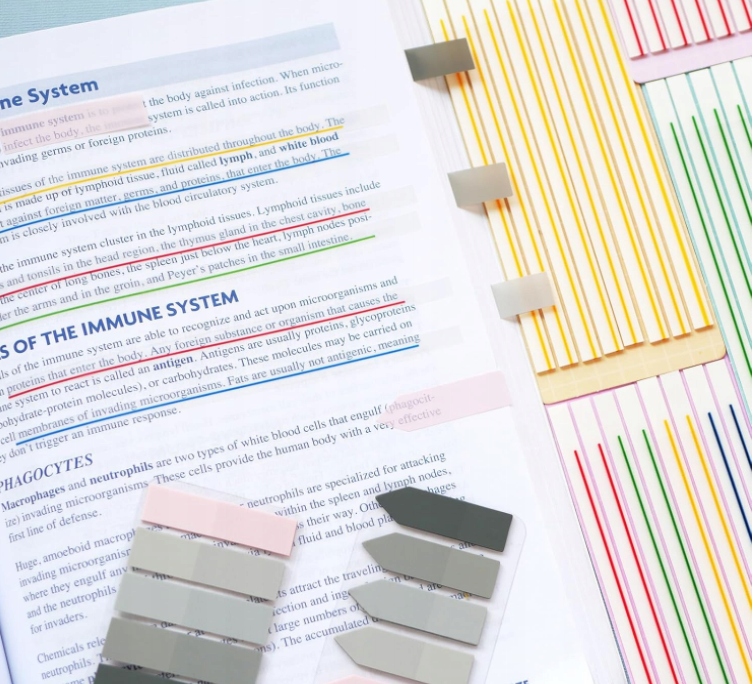 ne System
immune system is to protect the body against infection. When micro-
infect the body, the immune system is called into action. Its function
nvading germs or foreign proteins.
tissues of the immune system are distributed throughout the body. The
is made up of lymphoid tissue, fluid called lymph, and white blood
t against foreign matter, germs, and proteins, that enter the body. The
m is closely involved with the blood circulatory system.
the immune system cluster in the lymphoid tissues. Lymphoid tissues include
s and tonsils in the head region, the thymus gland in the chest cavity, bone
the center of long bones, the spleen just below the heart, lymph nodes posi-
der the arms and in the groin, and Peyer's patches in the small intestine.
S OF THE IMMUNE SYSTEM
lls of the immune system are able to recognize and act upon microorganisms and
n proteins that enter the body. Any foreign substance or organism that causes the
ne system to react is called an antigen. Antigens are usually proteins, glycoproteins
bohydrate-protein molecules), or carbohydrates. These molecules may be carried on
cell membranes of invading microorganisms. Fats are usually not antigenic, meaning
y don't trigger an immune response.
PHAGOCYTES
Macrophages and neutrophils are two types of white blood cells that engulf (phagocit-
ize) invading microorganisms. These cells provide the human body with a very effective
first line of defense.
neutrophils are specialized for attacking
Huge, amoeboid macrop within the spleen and lymph nodes,
invading microorganism s their way. Oth hages
where they engulf inv fluid and blood pla
and the neutrophils
for invaders. ts attract the traveling
ection and ing
Chemicals rele large numbers of
neutrophils. T ns). The accumulated